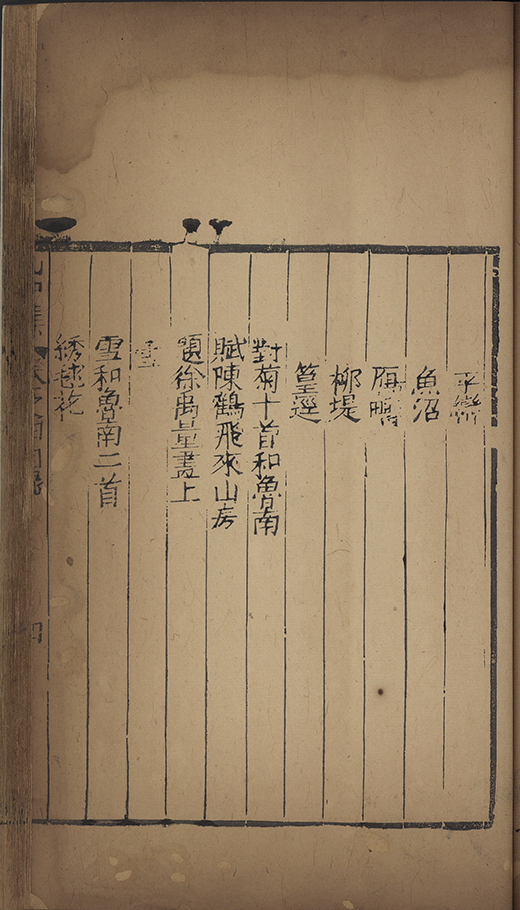 平巒
魚沼
雁
柳堤
篁逕
對菊十首和魯南
賦陳鶴飛來山房
題徐禹量畫上
雪
雪和魯南二首
綉毬花